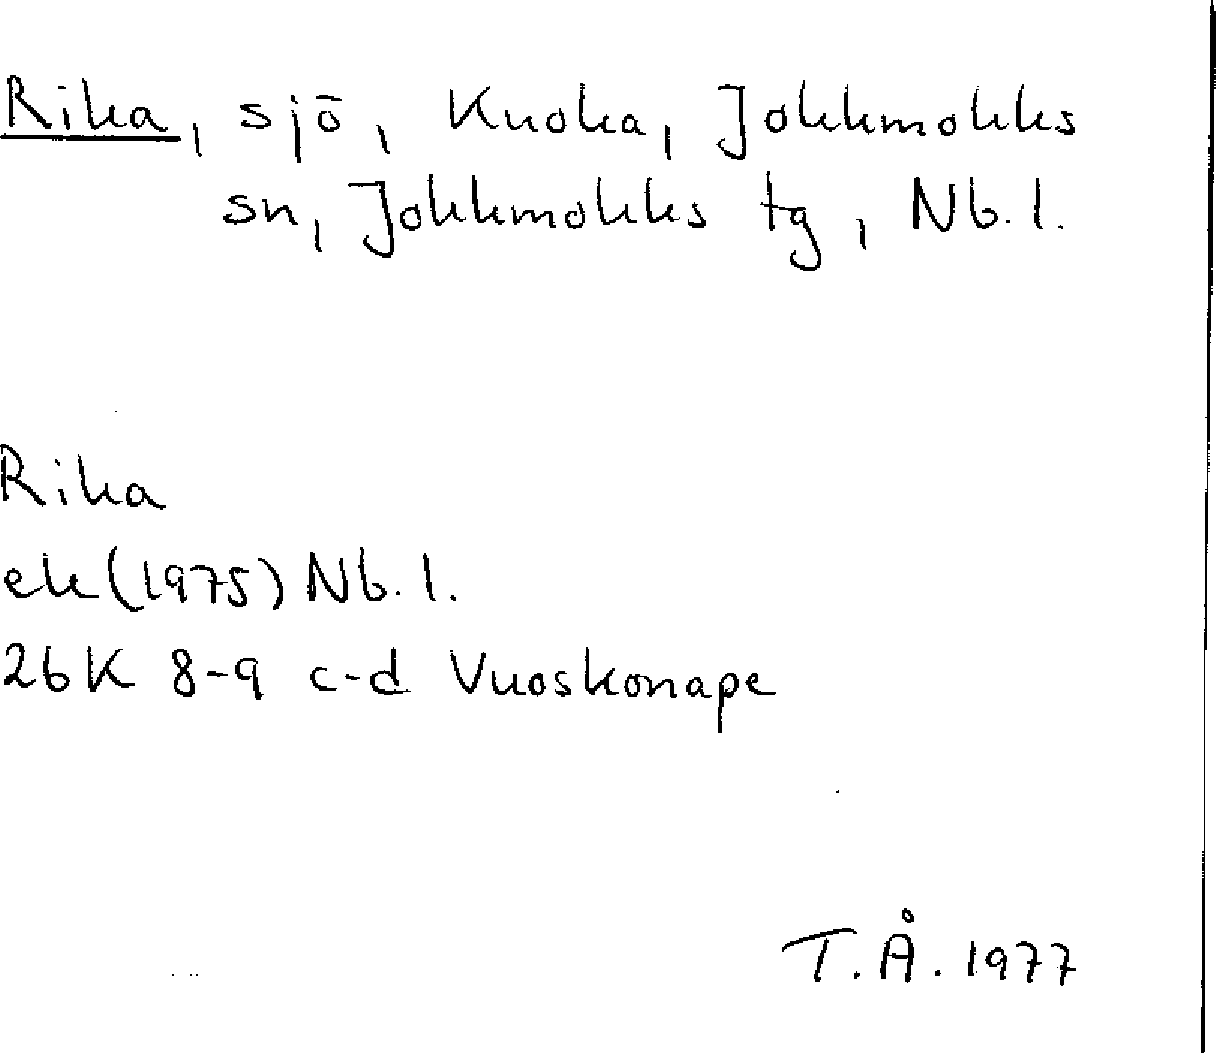 Rika, sjö, Kuoka, Jokkmokks
sn, Jokkmokks tg, Nb.l.
Rika
ek (1975) Nb.l.
26K 8-9 c-d Vuoskonape
T.Å. 1977